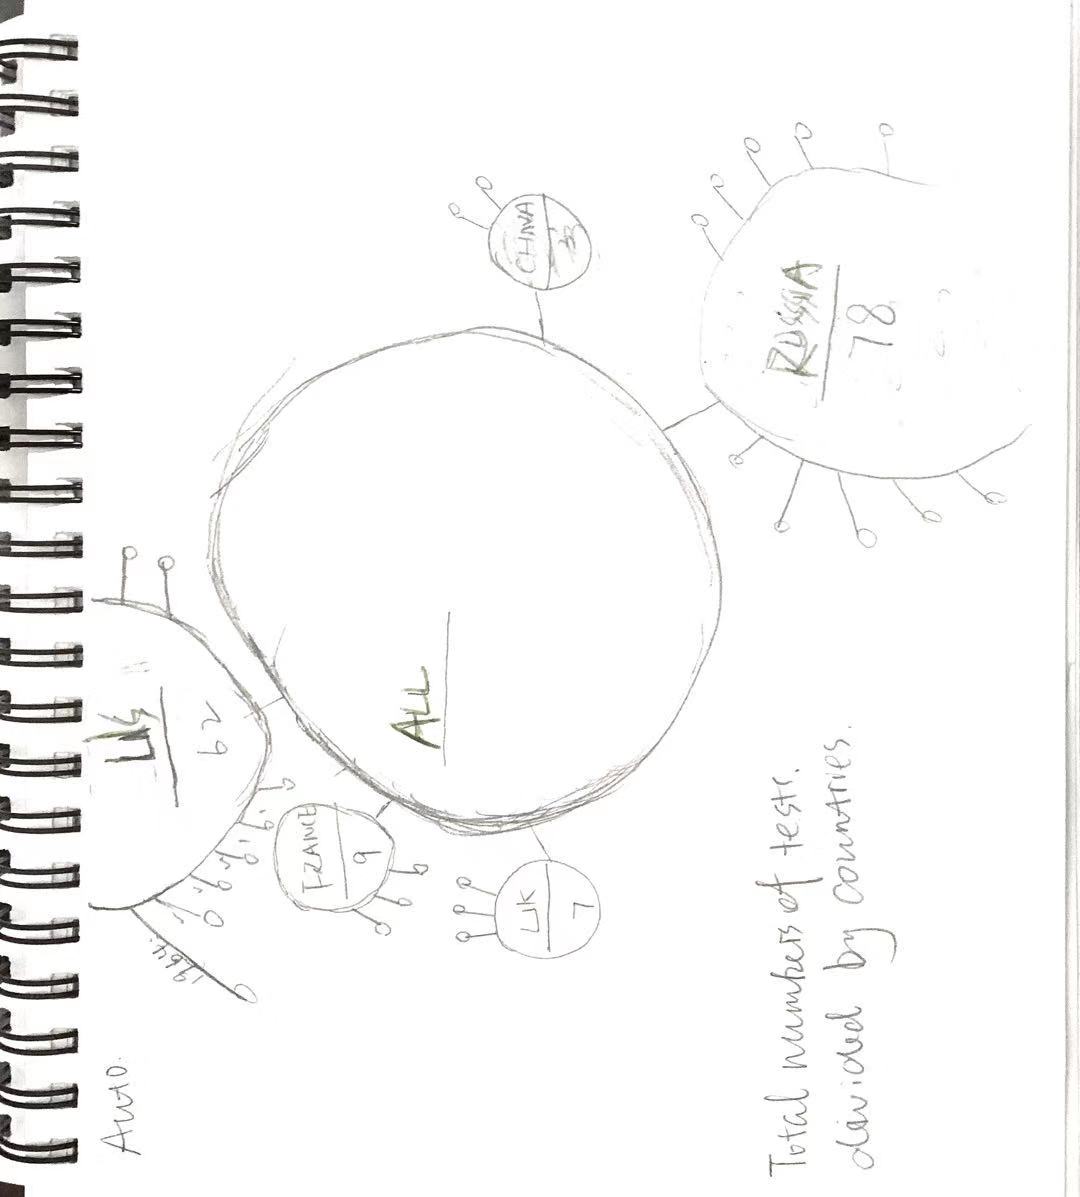 Auto.
US
62
1964.
FRANCE
9
ALL
UK
7
CHINA
RUSSIA
78
Total numbers of testr.
divided by countries.